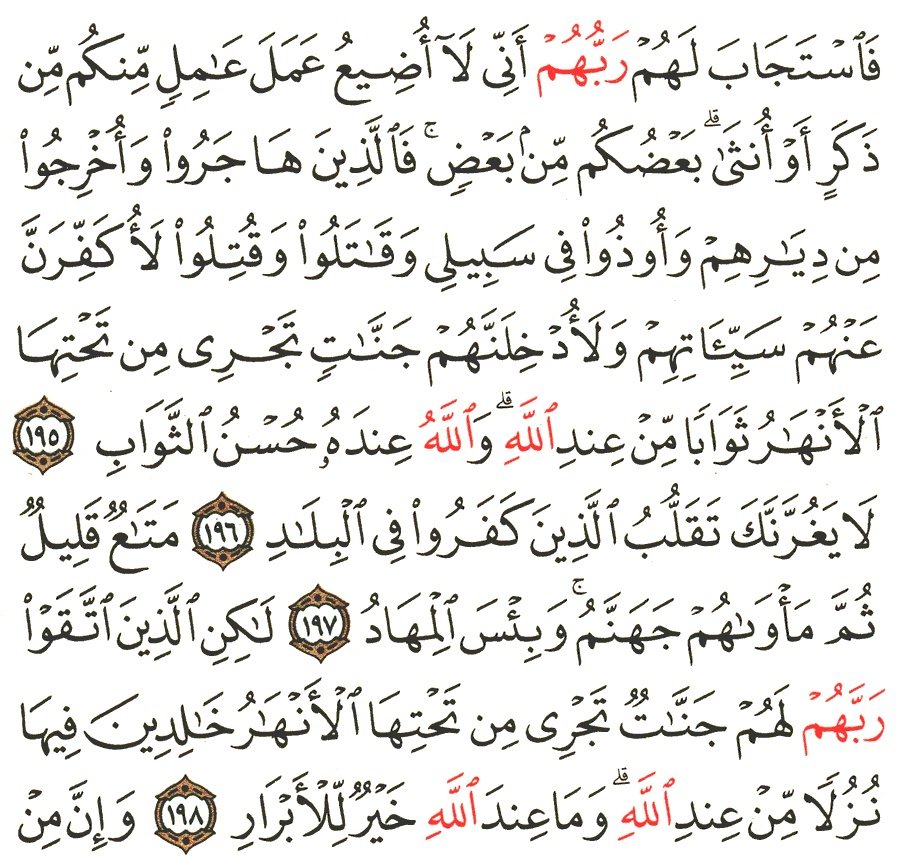 فَٱسۡتَجَابَ لَهُمۡ رَبُّهُمۡ أَنِّي لَآ أُضِيعُ عَمَلَ عَٰمِلٖ مِّنكُم مِّن
ذَكَرٍ أَوۡ أُنثَىٰۖ بَعۡضُكُم مِّنۢ بَعۡضٖۚ فَٱلَّذِينَ هَاجَرُواْ وَأُخۡرِجُواْ
مِن دِيَٰرِهِمۡ وَأُوذُواْ فِي سَبِيلِي وَقَٰتَلُواْ وَقُتِلُواْ لَأُكَفِّرَنَّ
عَنۡهُمۡ سَيِّـَٔاتِهِمۡ وَلَأُدۡخِلَنَّهُمۡ جَنَّٰتٖ تَجۡرِي مِن تَحۡتِهَا
ٱلۡأَنۡهَٰرُ ثَوَابٗا مِّنۡ عِندِ ٱللَّهِۚ وَٱللَّهُ عِندَهُۥ حُسۡنُ ٱلثَّوَابِ ١٩٥
لَا يَغُرَّنَّكَ تَقَلُّبُ ٱلَّذِينَ كَفَرُواْ فِي ٱلۡبِلَٰدِ ١٩٦ مَتَٰعٞ قَلِيلٞ
ثُمَّ مَأۡوَىٰهُمۡ جَهَنَّمُۚ وَبِئۡسَ ٱلۡمِهَادُ ١٩٧ لَٰكِنِ ٱلَّذِينَ ٱتَّقَوۡاْ
رَبَّهُمۡ لَهُمۡ جَنَّٰتٞ تَجۡرِي مِن تَحۡتِهَا ٱلۡأَنۡهَٰرُ خَٰلِدِينَ فِيهَا
نُزُلٗا مِّنۡ عِندِ ٱللَّهِۗ وَمَا عِندَ ٱللَّهِ خَيۡرٞ لِّلۡأَبۡرَارِ ١٩٨ وَإِنَّ مِنۡ